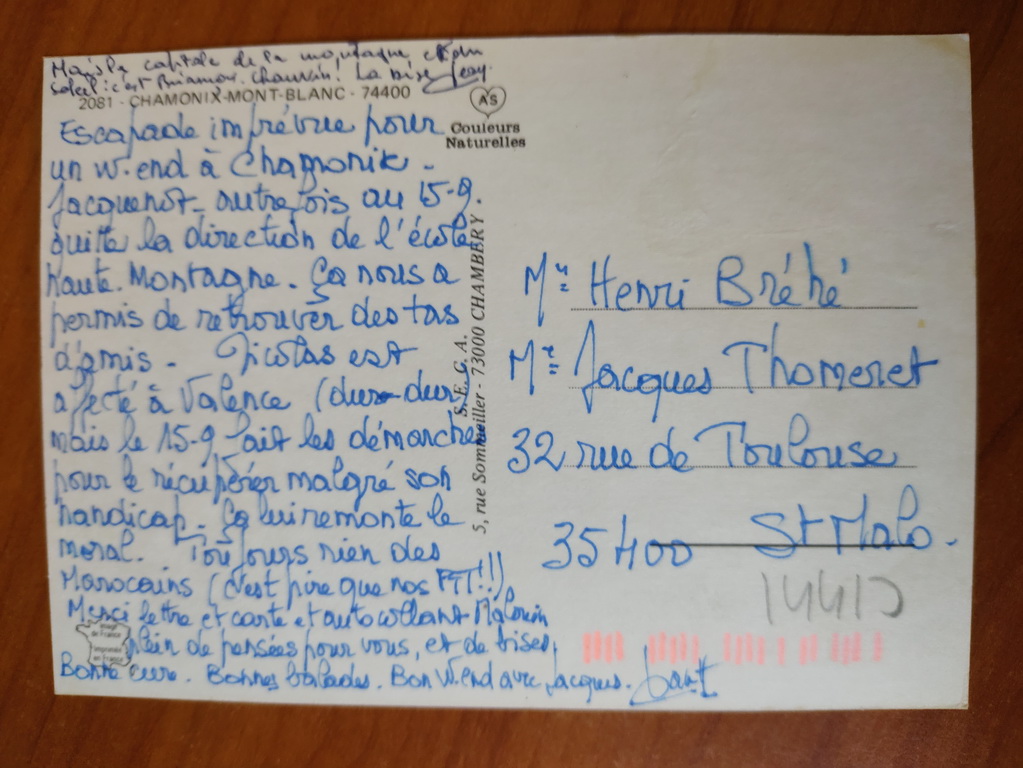 Mais la capitale de la montagne et du
soleil: c'est chauvin! La bise Jeay.
2081 - CHAMONIX-MONT-BLANC - 74400
AS
Couleurs
Naturelles
Escapade imprévue pour
un w.end à Chamonix.
Jacquenot - autrefois au 15-9.
quitte la direction de l'école
haute. Montagne. Ça nous a
permis de retrouver des tas
d'amis. Nicolas est
affecté à Valence (dur-dur
mais le 15-9 fait les démarches
pour le récupérer malgré son
handicap. Ça lui remonte le
moral. Toujours rien des
Marocains (c'est pire que nos PTT!!!)
Merci lettre et carte et autocollant Malouin
plein de pensées pour vous, et de bises.
Bonne cure. Bonnes balades. Bon W.end avec Jacques.
S.E.G.A.
5, rue Sommeiller - 73000 CHAMBERY
image de France
imprimée en France
Mr Henri Bréhé
Mr Jacques Thomeret
32 rue de Toulouse
35400 St Malo.
1441